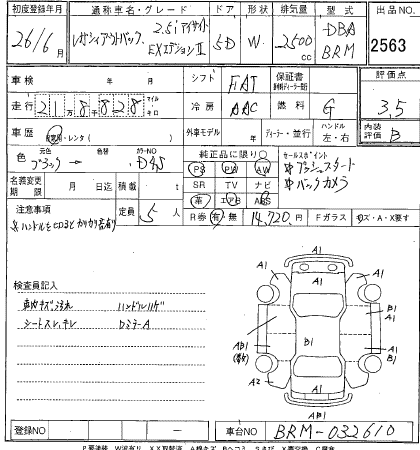 初度登録年月 通称車名・グレード ドア 形状 排気量 型式 出品NO.
26/6月 レガシィアウトバック 2.5i アイサイト EXエディションⅡ 5D W. 2500cc DBA BRM 2563
車検 年 月 シフト FAT 保証書 評価点
走行 21万8千828 マイル キロ 冷房 AAC 燃料 G 3.5
車歴 自家用・レンタ( ) 外車モデル 年 ディーラー・並行 ハンドル 左・右 内装評価 B
色 元色 ブラック → 色替 カラーNO D4S 純正品に限り○ セールスポイント
PS PW AW プッシュスタート
名義変更期限 月 日迄 積載 t SR TV ナビ バックカメラ
革 エアB ABS
注意事項 定員 5人 R券 有 無 14,720円 Fガラス
ハンドル
検査員記入
車内キズ汚れ ハンドルハゲ
シートスレ、キレ DミラーA
A1
A1 A1
A1 B1
AB1 B1 A1
A2 A1
A1
AB1
登録NO ー 車台NO BRM-032610